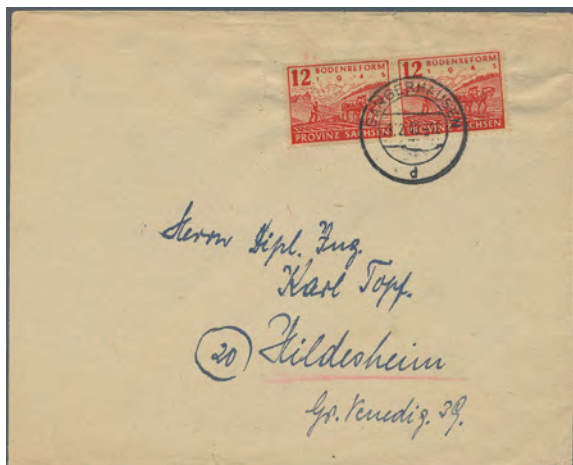 12 BODENREFORM
1945
PROVINZ SACHSEN
12 BODENREFORM
1945
PROVINZ SACHSEN
SANGERHAUSEN
d
Herrn Dipl. Ing.
Karl Topf.
(20) Hildesheim
Gr. Venedig. 39.